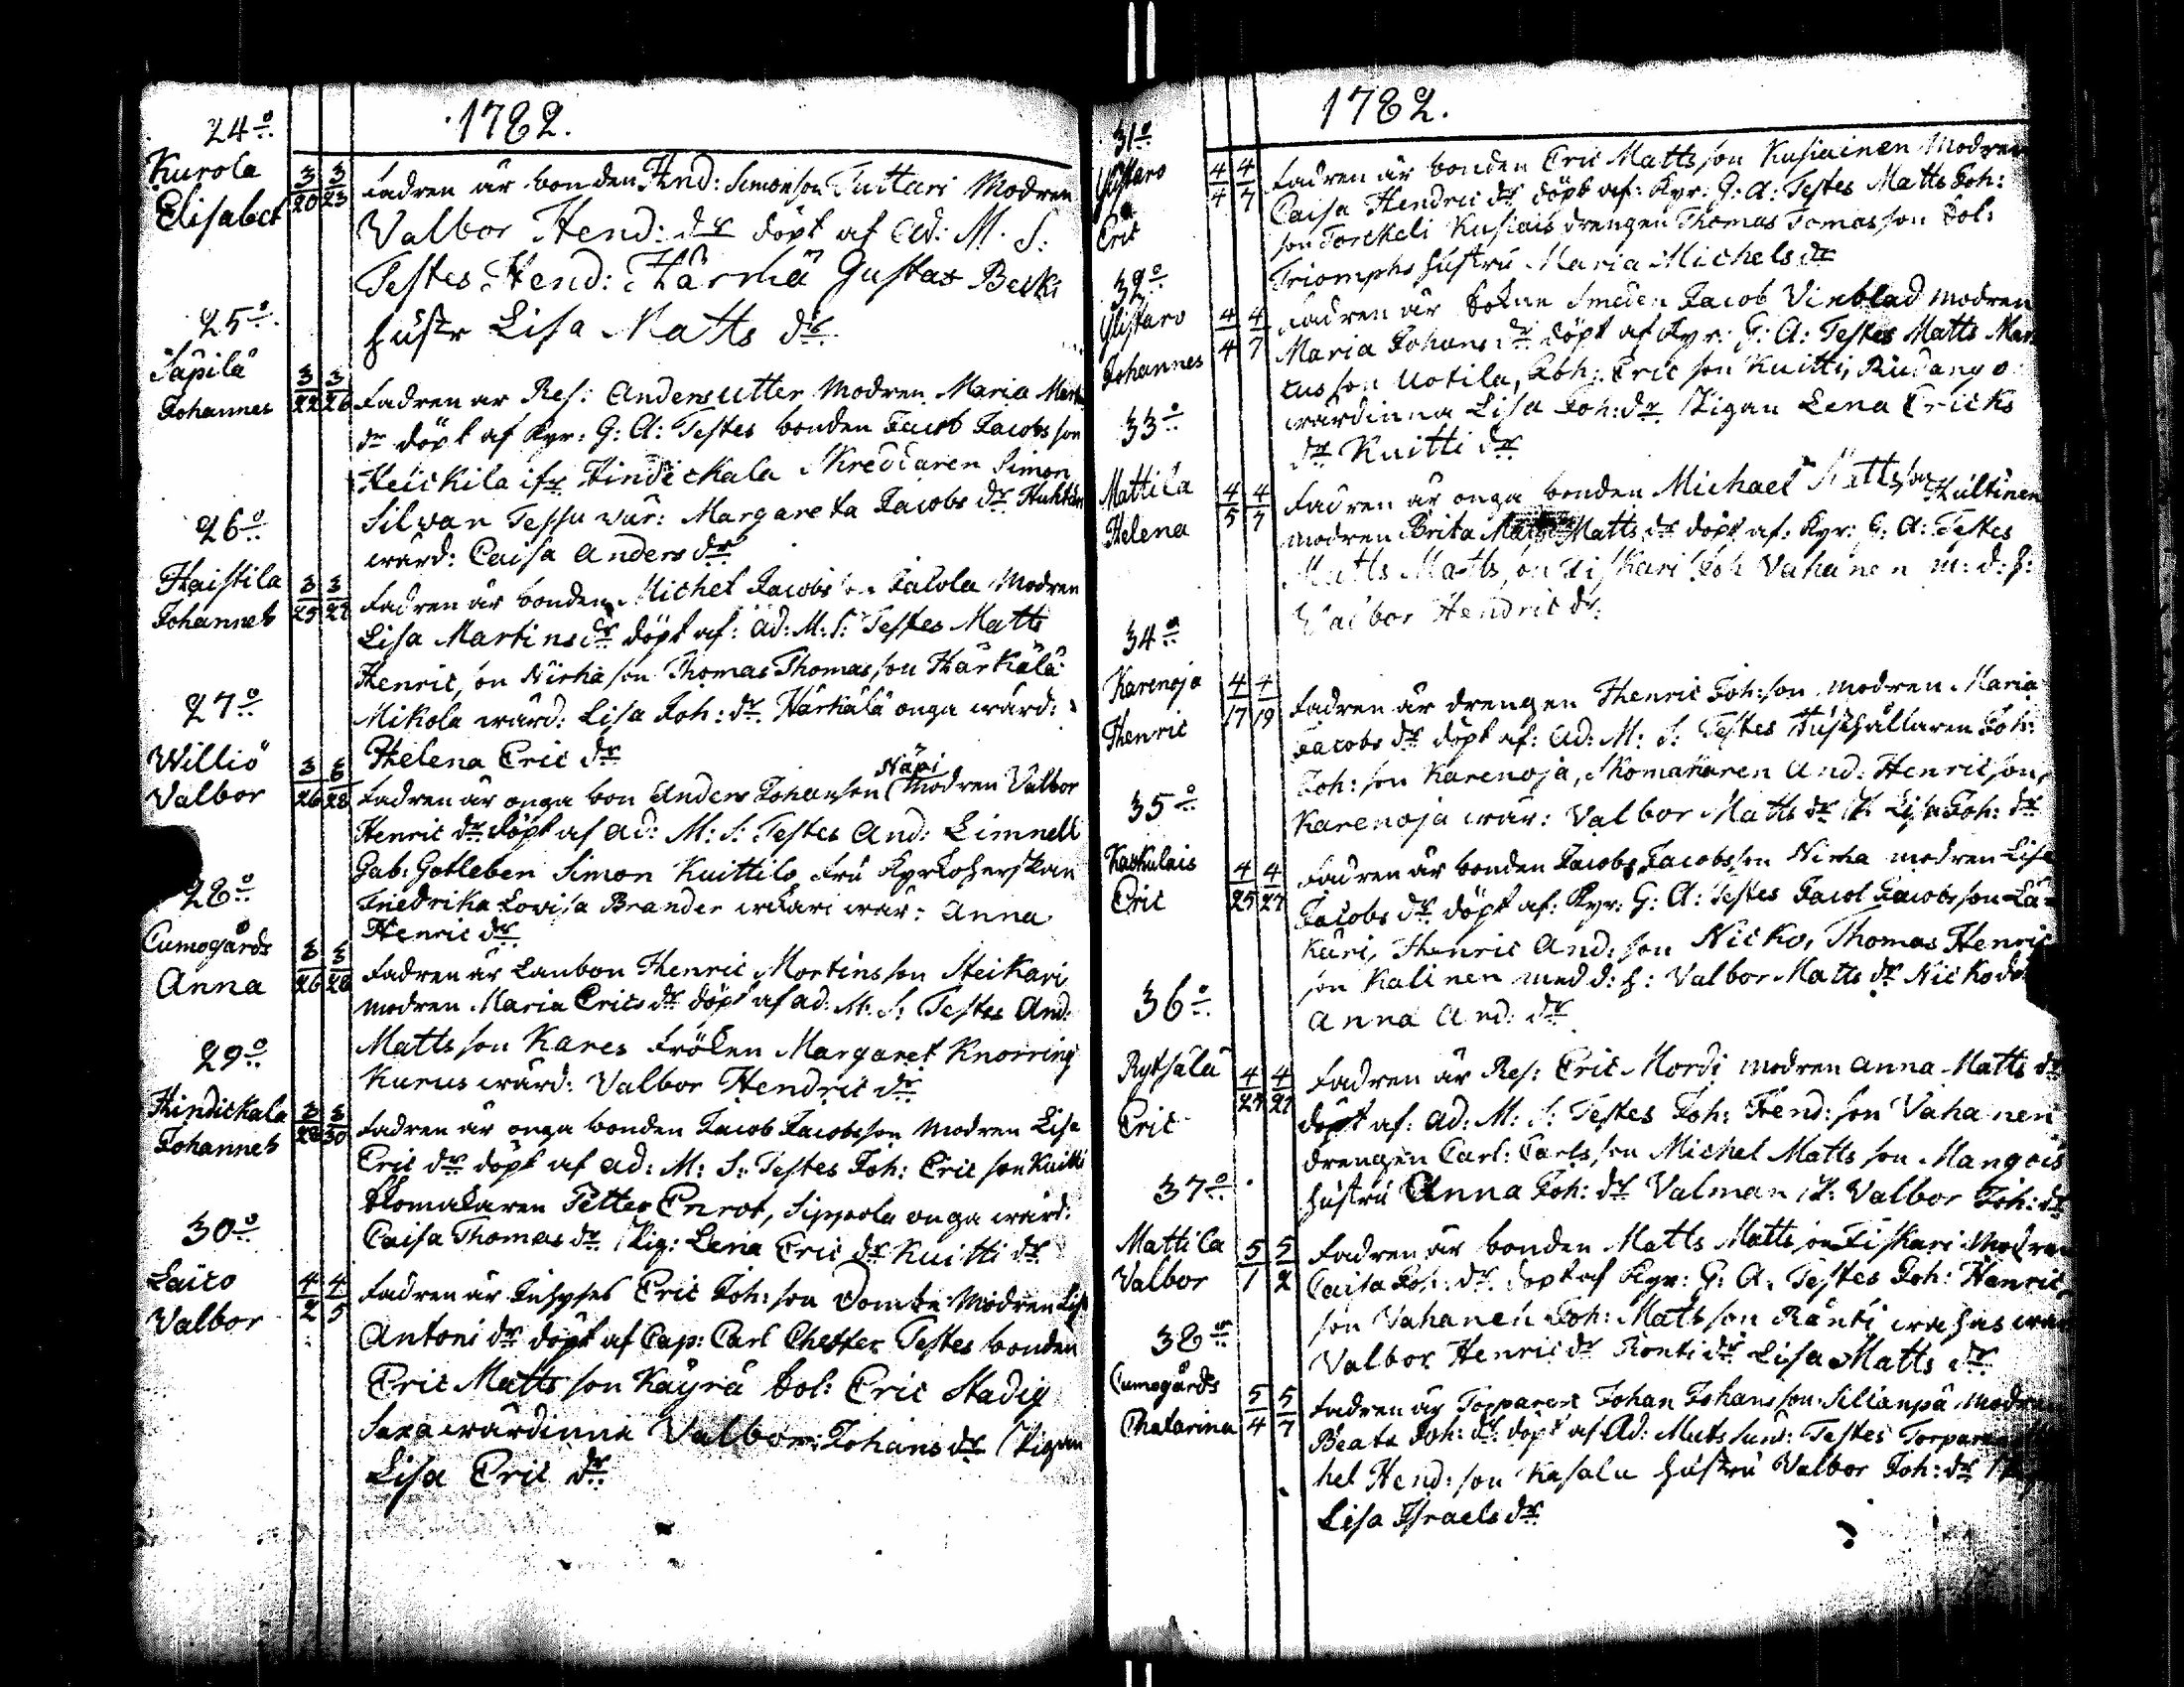 1782.
24o
Kurola
Elisabet
3/20 3/23
Fadren är bonden Hnd: Simonson Tuttari Modren
Valbor Hend: dr döpt af Ad: M. S:
Testes Hend: Härmä Gustav Becki
hustr Lisa Matts dr
25o
Sapilä
Johannes
3/22 3/26
Fadren är Res: Anders Utter Modren Maria Mart
dr döpt af Kyr: G: A: Testes bonden Jacob Jacobsson
Heickila ifr Hindickala Skreddaren Simon
Silvan Tessu vär: Margareta Jacobs dr Huhtan
wärd: Caisa Anders dr
26o
Haistila
Johannes
3/25 3/27
Fadren är bonden Michel Jacobsson Jalola Modren
Lisa Martins dr döpt af: Ad: M: S: Testes Matts
Henricson Nirha son Thomas Thomasson Härkälä
Mikola wärd: Lisa Joh: dr Härkälä onga wärd:
Helena Eric dr
27o
Williö
Valbor
3/26 3/28
Näpi
Fadren är onga bon Anders Johanson Modren Valbor
Henric dr döpt af Ad: M: S: Testes And: Limnell
Gab: Gotleben Simon Kuittilo Fru Kyrkoherskan
Friedrika Lovisa Brander wär: Anna
Henric dr
28o
Cumogårds
Anna
3/26 3/28
Fadren är Lanbon Henric Mortinsson Steikari
modren Maria Erics dr döpt af Ad: M: S: Testes And:
Mattsson Kares Fröken Margaret Knorring
Kurus wärd: Valbor Hendric dr
29o
Hindickala
Johannes
3/28 3/30
Fadren är onga bonden Jacob Jacobsson Modren Lisa
Eric dr döpt af Ad: M: S: Testes Joh: Ericson Kuitti
Skomakaren Petter Enrot, Sippola onga wärd:
Caisa Thomas dr Pig: Lena Eric dr Kuitti dr
30o
Laico
Valbor
4/2 4/5
Fadren är Inhyses Eric Joh: son Domte Modren Lisa
Antoni dr döpt af Cap: Carl Chetter Testes bonden
Eric Mattsson Käyrä Sol: Eric Stadig
Saxa wärdinna Valbor: Johans dr Pigan
Lisa Eric dr
1782.
31o
Ylistaro
Eric
4/4 4/7
Fadren är bonden Eric Mattsson Kusiainen Modren
Caisa Hendric dr döpt af: Kyr: G: A: Testes Matts Joh:
son Torckeli Kusiais drengen Thomas Tomasson Sol:
Triomphs hustru Maria Michels dr
32o
Ylistaro
Johannes
4/4 4/7
Fadren är Sokne Smeden Jacob Vinblad Modren
Maria Johans dr döpt af Kyr: G: A: Testes Matts Mar
tusson Uotila, Joh: Ericson Kuitti, Rudango
wärdinna Lisa Joh: dr Pigan Lena Ericks
dr Kuitti dr
33o
Mattila
Helena
4/5 4/7
Fadren är onga bonden Michael Mattsson Hultinen
modren Brita Matts dr döpt af: Kyr: G: A: Testes
Matts Mattsson Fiskari Joh Vahanen m: d: h:
Valbor Hendric dr
34o
Karenoja
Henric
4/17 4/19
Fadren är drengen Henric Joh: son modren Maria
Jacobs dr döpt af: Ad: M: S: Testes Hushållaren Joh:
Joh: son Karenoja, Skomakaren And: Henricson,
Karenoja wär: Valbor Matts dr P: Lisa Joh: dr
35o
Kaukulais
Eric
4/25 4/27
Fadren är bonden Jacobs Jacobsson Nirha modren Lisa
Jacobs dr döpt af: Kyr: G: A: Testes Jacol Jacobsson La=
kari, Henric And: son Nicko, Thomas Henric
son Kalinen med d: h: Valbor Matts dr Nicko
Anna And: dr
36o
Rytsälä
Eric
4/27 4/27
Fadren är Res: Eric Mordi modren Anna Matts dr
döpt af: Ad: M: S: Testes Joh: Hend: son Vahanen
drengen Carl: Carlsson Michel Mattsson Mangois
hustru Anna Joh: dr Valman P: Valbor Joh: dr
37o
Mattila
Valbor
5/1 5/2
Fadren är bonden Matts Mattsson Fiskari Modren
Caisa Joh: dr döpt af Kyr: G: A: Testes Joh: Henric
son Vahanen Joh: Matsson Ränti
Valbor Henric dr Ronti dr Lisa Matts dr
38o
Cumogårds
Chatarina
5/4 5/7
Fadren är Torparen Johan Johansson Sillanpä Modren
Beata Joh: dr döpt af Ad: Testes Torparen
hel Hend: son Kasala hustru Valbor Joh: dr
Lisa Israels dr